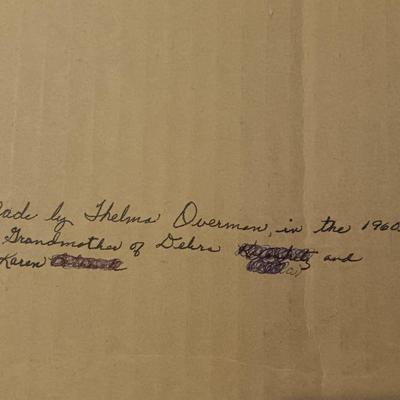 ade by Thelma Overman, in the 1960s
Grandmother of Debra and
Karen